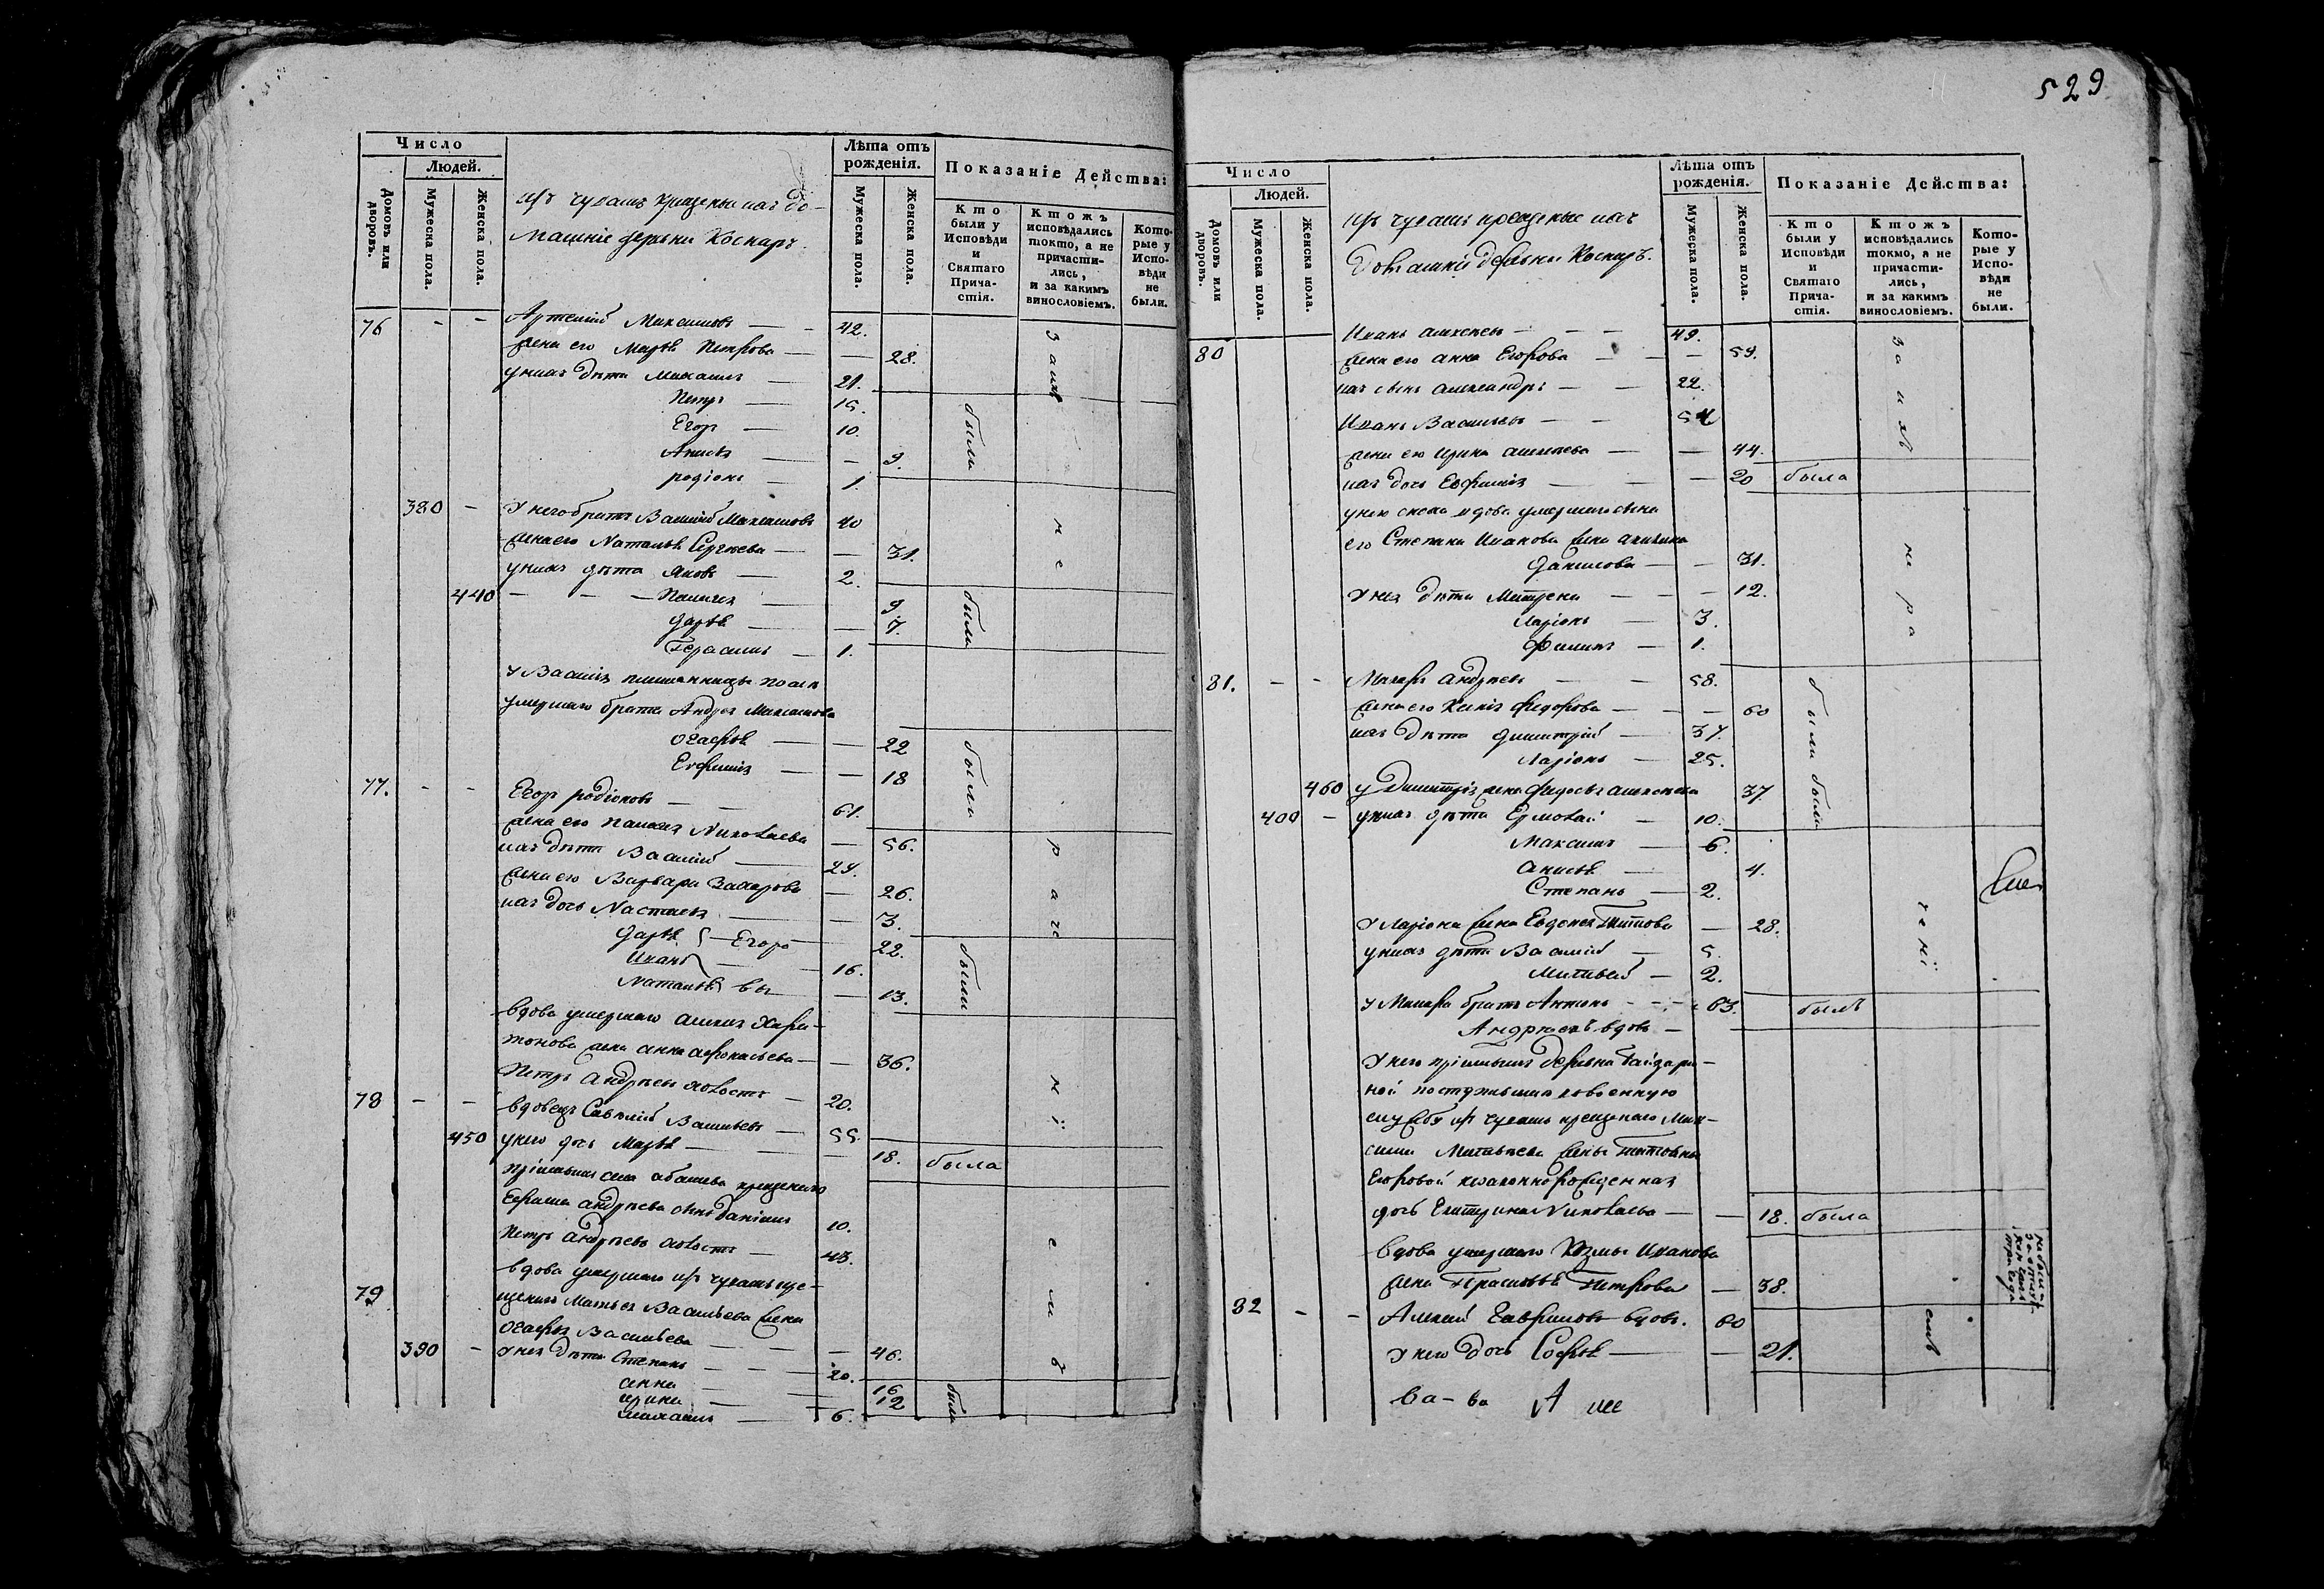 Число
Людей.
Домовъ или дворовъ.
Мужеска пола.
Женска пола.
изъ чувашъ крещены ихъ до-
машніе деревни Коснаръ.
Лѣта отъ рожденія.
Мужеска пола.
Женска пола.
Показаніе Действа:
Кто были у Исповѣди и Святаго Причастія.
Ктожъ исповѣдались токмо, а не причастились, и за какимъ винословіемъ.
Которые у Исповѣди не были.
76 - - Артемій Максимовъ — 42.
жена его Марѳа Петрова — — 28.
у нихъ дѣти Михаилъ — 21.
Петръ — 15.
Егоръ — 10.
Анисья — — 9.
родіонъ — 1.
380 - У него братъ Василій Максимовъ 40
жена его Наталья Сергеева — — 31.
у нихъ дѣти Яковъ — 2.
440 - - - Пелагея — 9
Дарья — — 7.
Герасимъ — 1.
У Василія племянницы послѣ
умершаго брата Андрея Максимова
Агафья — — 22
Евфимія — — 18
77. - - Егоръ родіоновъ — 61.
жена его Пелагея Николаева — 56.
ихъ дѣти Василій — 24.
жена его Варвара Захарова — 26.
ихъ дочь Настасья — — 3.
Дарья — Егоро 22.
Иванъ — 16.
Наталья вы — 13.
вдова умершаго Алексея Хари-
тонова жена анна афонасьева — — 36.
Петръ Андреевъ холостъ — 20.
78 - - вдовецъ Савелий Васильевъ — 55.
450 у него дочь Марѳа — — 18. была
пріемышъ села абашева крещенаго
Герасима андреева сынъ Даніилъ 10.
Петръ Андреевъ холостъ — 43.
79 вдова умершаго изъ чувашъ кре-
щенаго Матвея Васильева жена
Агафья Васильева — — 46.
390 - у нея дѣти Степанъ — 20.
анна — — 16
ирина — — 12
михаилъ — 6.
были
были
были
были
были
за ихъ
не
ра
че
ні
емъ
529
Число
Людей.
Домовъ или дворовъ.
Мужеска пола.
Женска пола.
изъ чувашъ крещеные ихъ
домашніе деревни Коснаръ.
Лѣта отъ рожденія.
Мужеска пола.
Женска пола.
Показаніе Действа:
Кто были у Исповѣди и Святаго Причастія.
Ктожъ исповѣдались токмо, а не причастились, и за какимъ винословіемъ.
Которые у Исповѣди не были.
80 Иванъ алексеевъ — — 49.
жена его анна Егорова — — 59.
ихъ сынъ александръ — — 22.
Иванъ Васильевъ — —
жена его ирина алексеева — — 44.
ихъ дочь Евфимія — — 20 была
у него сноха вдова умершаго сына
его Степана Иванова жена акилина
Данилова — — 31.
У нея дѣти Матрена — — 12.
Ларіонъ — 3.
Филипъ — 1.
81. - - Макаръ Андреевъ — 58.
жена его Ксенія Федорова — — 60
ихъ дѣти Димитрій — 37.
Ларіонъ — 25.
460 у Димитрія жена Федосья алексеева 37.
400 - у нихъ дѣти Ермолай — 10.
Максимъ — 6.
Анисья — 4.
Степанъ — 2.
У Ларіона жена Евдокея Титова — 28.
у нихъ дѣти Василій — 5.
Матвей — 2.
у Макара братъ Антонъ - - 63. былъ
Андреевъ вдовъ —
У него пріемышъ деревни Байдери-
ной поступившаго в военную
службу изъ чувашъ крещенаго Мак-
сима Матвеева жены Титовны
Егоровой незаконнорожденная
дочь Екатерина Николаева — — 18. была
вдова умершаго Козмы Иванова
жена Герасимья Петрова — 38.
82 - - Алексей Гавриловъ вдовъ. 60
У него дочь Софья — — 21.
были были
за ихъ
не ра
чені
емъ
ва-ва А